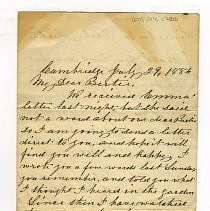 Cambridge July 29, 1884
My Dear Bertie.
We received Emma's
letter last night, but she said
not a word about our dear Bertie
so I am going to send a letter
direct to you, and hope it will
find you well and happy. I
wrote you a few words last Sunday
you remember, and told you what
I thought I heard in the garden
Since then I have watched